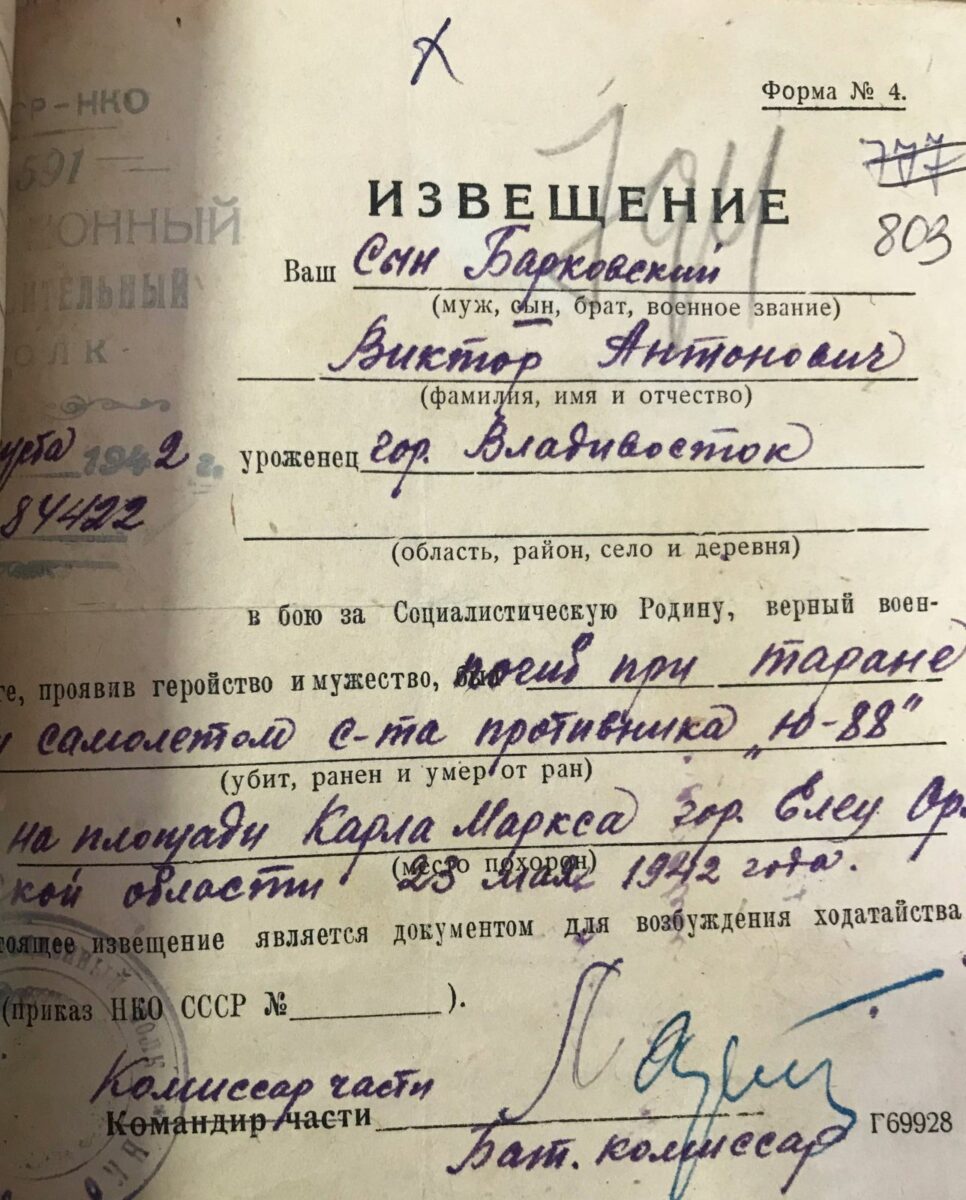 Форма № 4.
СР-НКО
591
777
803
794
ИЗВЕЩЕНИЕ
ИОННЫЙ
ИТЕЛЬНЫЙ
ОЛК
Ваш Сын Барковский
(муж, сын, брат, военное звание)
Виктор Антонович
(фамилия, имя и отчество)
уста 1942 г.
уроженец гор. Владивосток
84422
(область, район, село и деревня)
в бою за Социалистическую Родину, верный воен-
ге, проявив геройство и мужество, был погиб при таране
самолетом с-та противника „Ю-88"
(убит, ранен и умер от ран)
на площади Карла Маркса гор. Елец Ор.
(место похорон)
кой области 23 мая 1942 года.
тоящее извещение является документом для возбуждения ходатайства
(приказ НКО СССР № ).
Комиссар части
Командир части
Г69928
Бат. комиссар